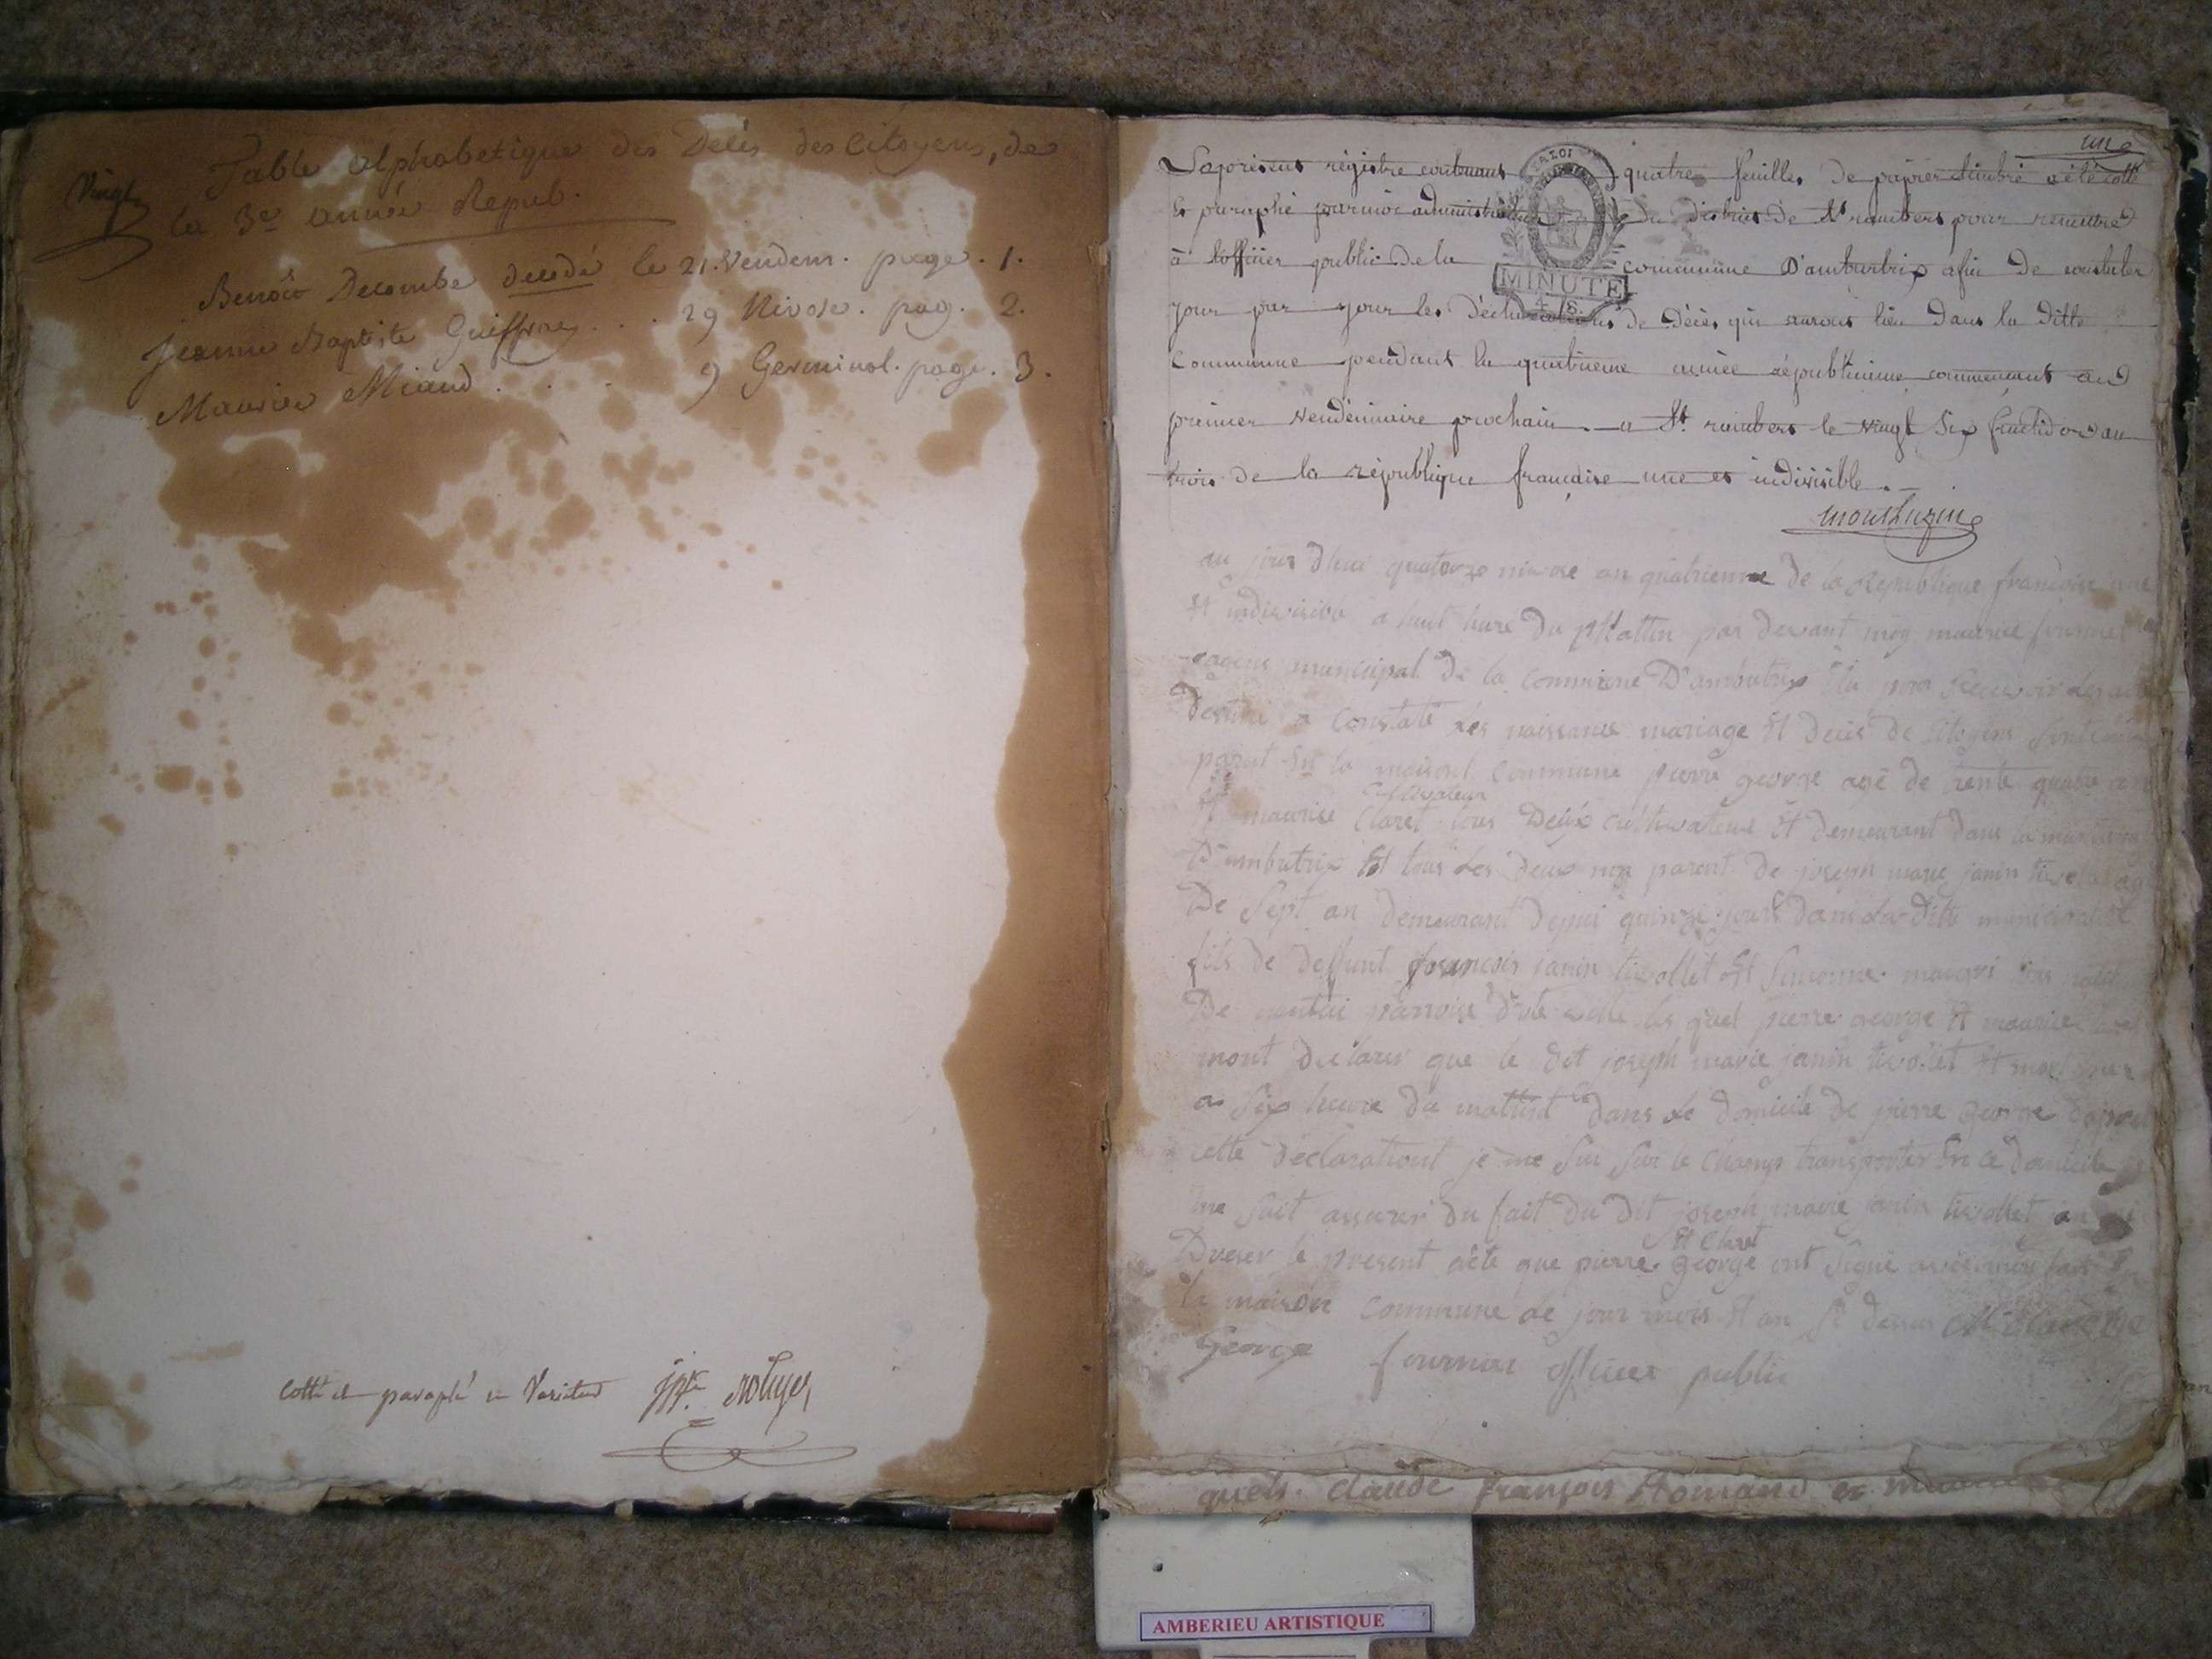 Vingt
Table Alphabetique des Décès des Citoyens, de
la 3e année Repub.
Benoît Decombe décédé le 21. Vendem. page. 1.
Jeanne Baptiste Guiffrey . . . 29 Nivose. pag. 2.
Maurice Miaud . . . 9 Germinal. page. 3.
Cotté et paraphé
une
Le présent régistre contenant quatre feuilles de papier timbré a été cotté
et paraphé par moi administrateur du district de St rambert pour remettre
à l'officier public de la commune D'ambutrix afin de constater
jour par jour les déclarations de décès qui auront lieu dans la ditte
Commune pendant la quatrieme année républicaine commencant au
premier vendémiaire prochain. a St. rambert le vingt six fructidor an
trois de la république française une et indivisible.
montluzin
MINUTE
au jour dhui quatorze nivose an quatrieme de la Republique francoise une
et indivisible a huit hure du Mattin par devant moy maurice
municipal de la Commune D'ambutrix élu pour Recevoir les acte
destiné a Constaté les naissance mariage Et décès de Citoyens
parut En la maisont Commune pierre george agé de trente quatre an
Cultivateur
Et maurice Claret tous Deux cultivateur Et demeurant dans la
D'ambutrix Et tous Les deux non parent de joseph marie janin tivollet agé
De Sept an demeurant Depui quinze jours dans La Ditte municipalité
fils de deffunt francois janin tivollet Et Simonne
De parroise les quel pierre george Et maurice Claret
mont declarer que le Dit joseph marie janin tivollet Et mort
a Six heure du mattint dans Le domicile de pierre George Dapres
cette Déclarationt je me Sui Sur le Champ transporter En ce domicile
me Suit assurer du fait du Dit joseph marie janin tivollet
Et Claret
Dreser le present acte que pierre George ont Signé avec moy fait En
la maison Commune le jour mois Et an
George fournier officier public
quels. Claude françois Romand et
AMBERIEU ARTISTIQUE